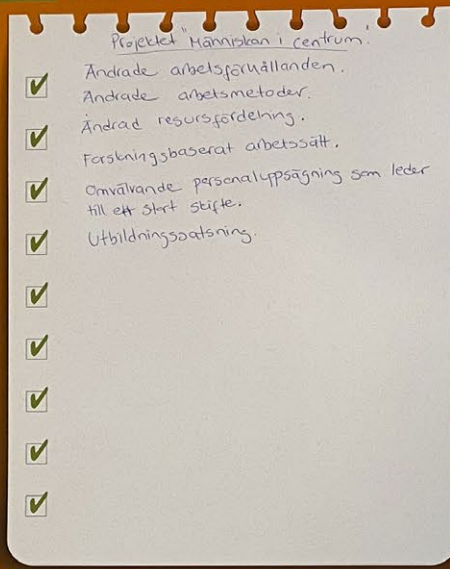 Projektet "Människan i centrum"
Ändrade arbetsförhållanden.
Ändrade arbetsmetoder.
Ändrad resursfördelning.
Forskningsbaserat arbetssätt.
Omvälvande personaluppsägning som leder
till ett stort skifte.
Utbildningssatsning.